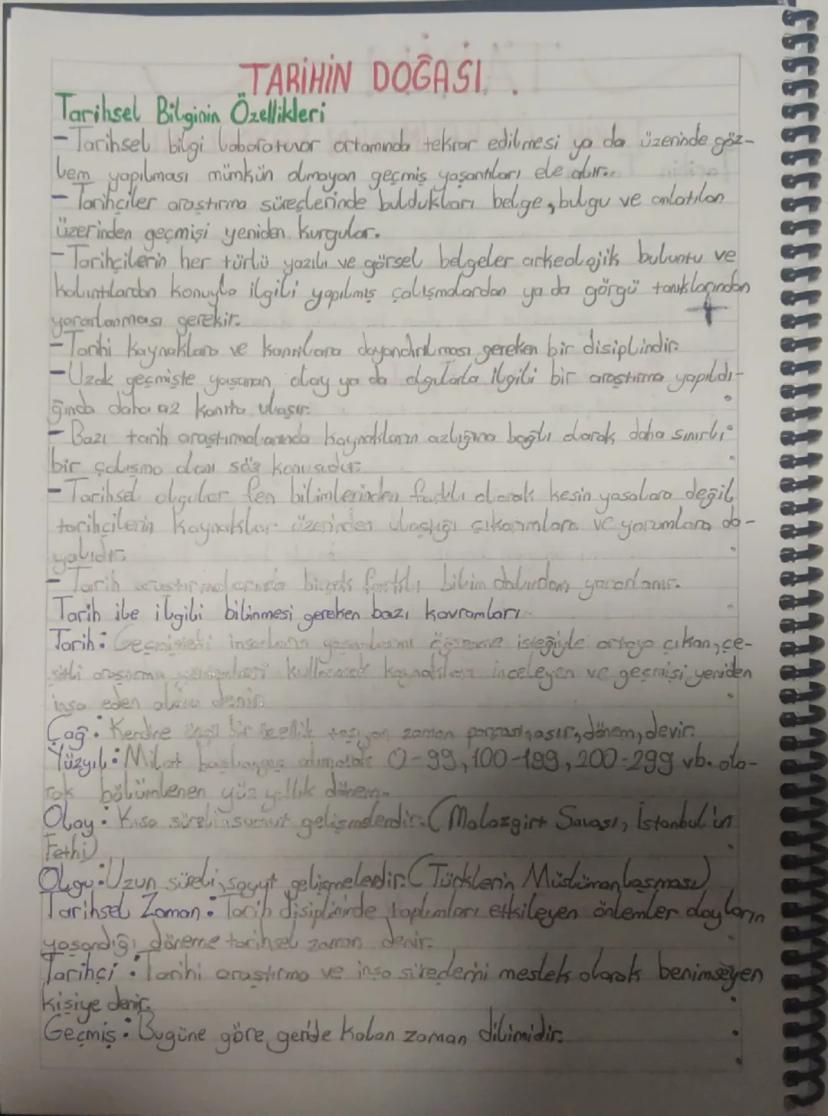 TARİHİN DOĞASI.
Tarihsel Bilginin Özellikleri
- Tarihsel bilgi laboratuvar ortamında tekrar edilmesi ya da üzerinde göz-
lem yapılması mümkün olmayan geçmiş yaşantıları ele alır.
- Tarihçiler araştırma süreçlerinde buldukları belge, bulgu ve anlatılan
üzerinden geçmişi yeniden kurgular.
- Tarihçilerin her türlü yazılı ve görsel belgeler arkeolojik buluntu ve
kalıntılardan konuyla ilgili yapılmış çalışmalardan ya da görgü tanıklarından
yararlanması gerekir.
- Tarihi kaynaklara ve kanıtlara dayandırılması gereken bir disiplindir.
- Uzak geçmişte yaşanan olay ya da olgularla ilgili bir araştırma yapıldı-
ğında daha az kanıta ulaşır.
- Bazı tarih araştırmalarında kaynakların azlığına bağlı olarak daha sınırlı
bir çalışma alanı söz konusudur.
- Tarihsel olgular fen bilimlerinden farklı olarak kesin yasalara değil
tarihçilerin kaynaklar üzerinden ulaştığı çıkarımlara ve yorumlara da-
yalıdır.
- Tarih araştırmalarında birçok farklı bilim dalından yararlanır.
Tarih ile ilgili bilinmesi gereken bazı kavramları
Tarih: Geçmişteki insanların yaşamlarını öğrenme isteğiyle ortaya çıkan, çe-
şitli araştırma yöntemleri kullanarak kaynakları inceleyen ve geçmişi yeniden
inşa eden alana denir.
Çağ: Kendine özgü bir özellik taşıyan zaman parçası, asır, dönem, devir.
Yüzyıl: Milat başlangıç alınarak 0-99, 100-199, 200-299 vb. ola-
rak bölümlenen yüz yıllık dönem.
Olay: Kısa süreli somut gelişmelerdir. (Malazgirt Savaşı, İstanbul'un
Fethi)
Olgu: Uzun süreli, soyut gelişmelerdir. (Türklerin Müslümanlaşması)
Tarihsel Zaman: Tarih disiplininde toplumları etkileyen önlemler olayların
yaşandığı döneme tarihsel zaman denir.
Tarihçi: Tarihi araştırma ve inşa süreçlerini meslek olarak benimseyen
kişiye denir.
Geçmiş: Bugüne göre geride kalan zaman dilimidir.